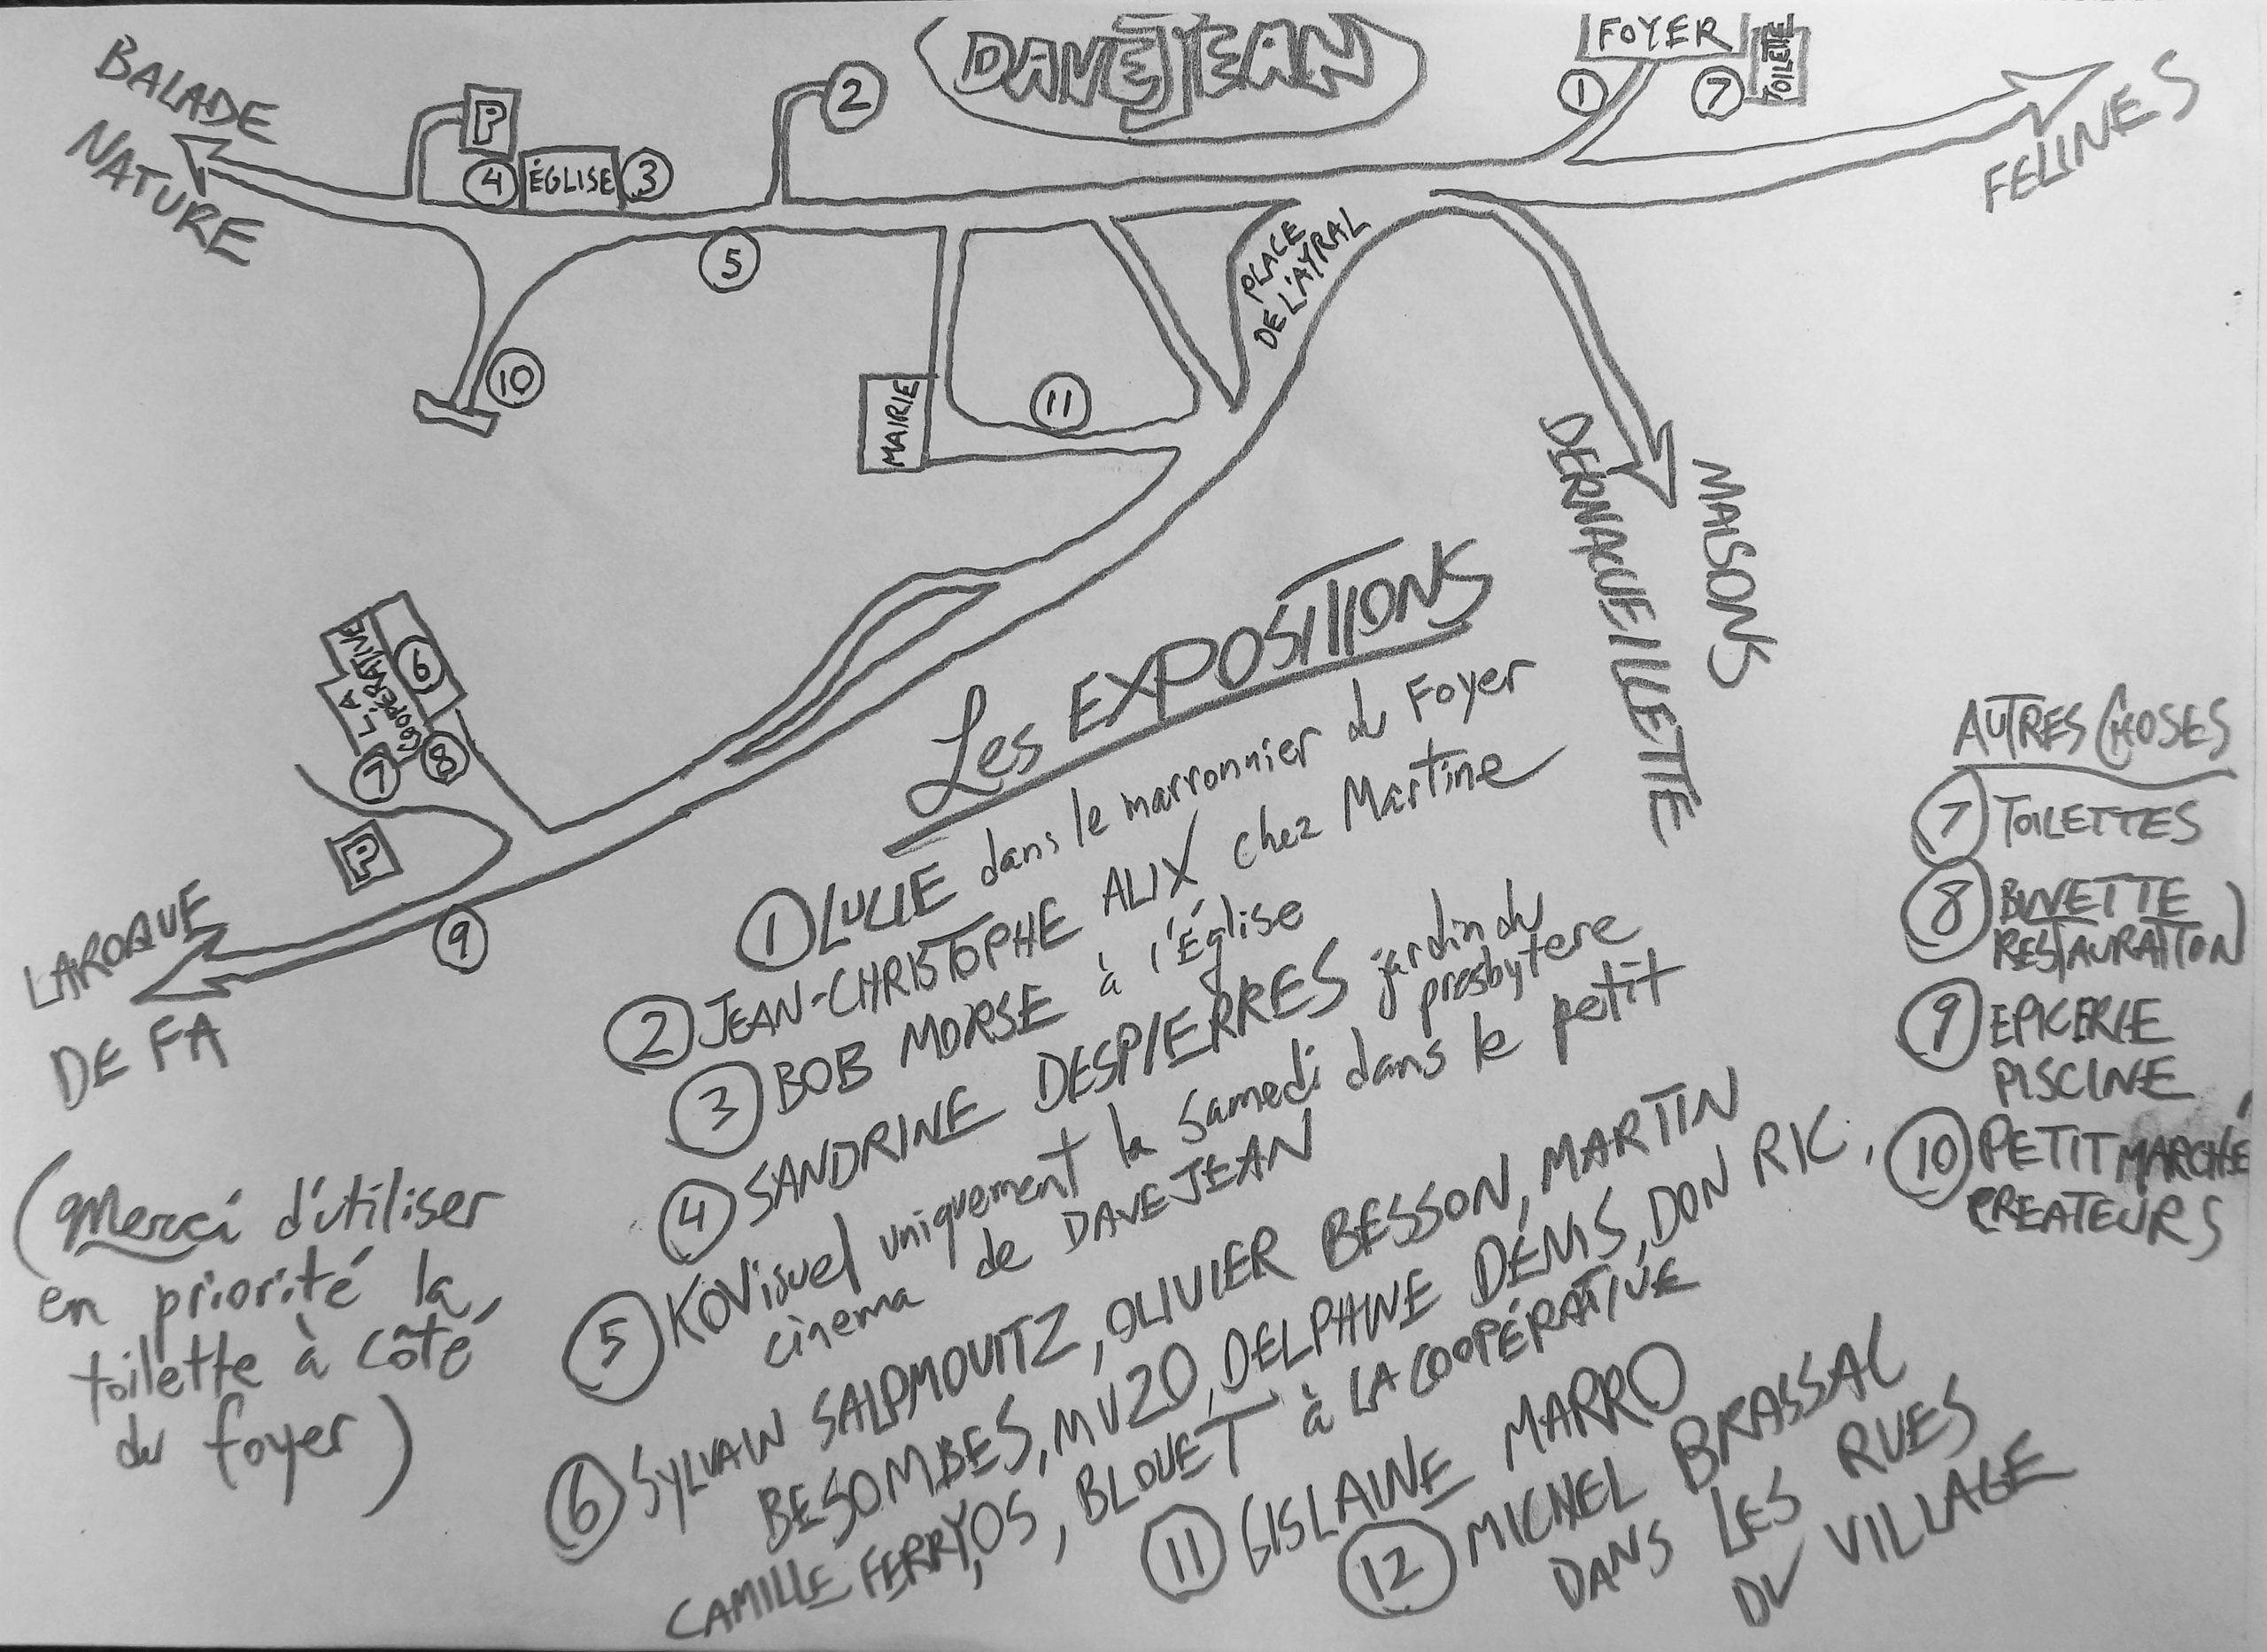 DAVEJEAN
FOYER
TOILETTE
1
7
FELINES
BALADE
NATURE
P
4
ÉGLISE
3
2
5
10
MAIRIE
11
PLACE
DE L'AYRAL
MAISONS
DERNACUEILLETTE
LA
COOPÉRATIVE
6
7
8
P
9
LAROQUE
DE FA
Les EXPOSITIONS
1 LUCIE dans le marronnier du Foyer
2 JEAN-CHRISTOPHE ALIX chez Martine
3 BOB MORSE à l'Église
4 SANDRINE DESPIERRES jardin du
presbytere
5 KOVisuel uniquement le samedi dans le petit
cinema de DAVEJEAN
6 SYLVAIN SALPMOVITZ, OLIVIER BESSON, MARTIN
BESOMBES, MVZO, DELPHINE DÉNIS, DON RIC,
CAMILLE FERRY, OS, BLOUET à LA COOPÉRATIVE
11 GISLAINE MARRO
12 MICHEL BRASSAC
DANS LES RUES
DU VILLAGE
AUTRES CHOSES
7 TOILETTES
8 BUVETTE
RESTAURATION
9 EPICERIE
PISCINE
10 PETIT MARCHÉ
CREATEURS
(Merci d'utiliser
en priorité la
toilette à côté
du foyer)